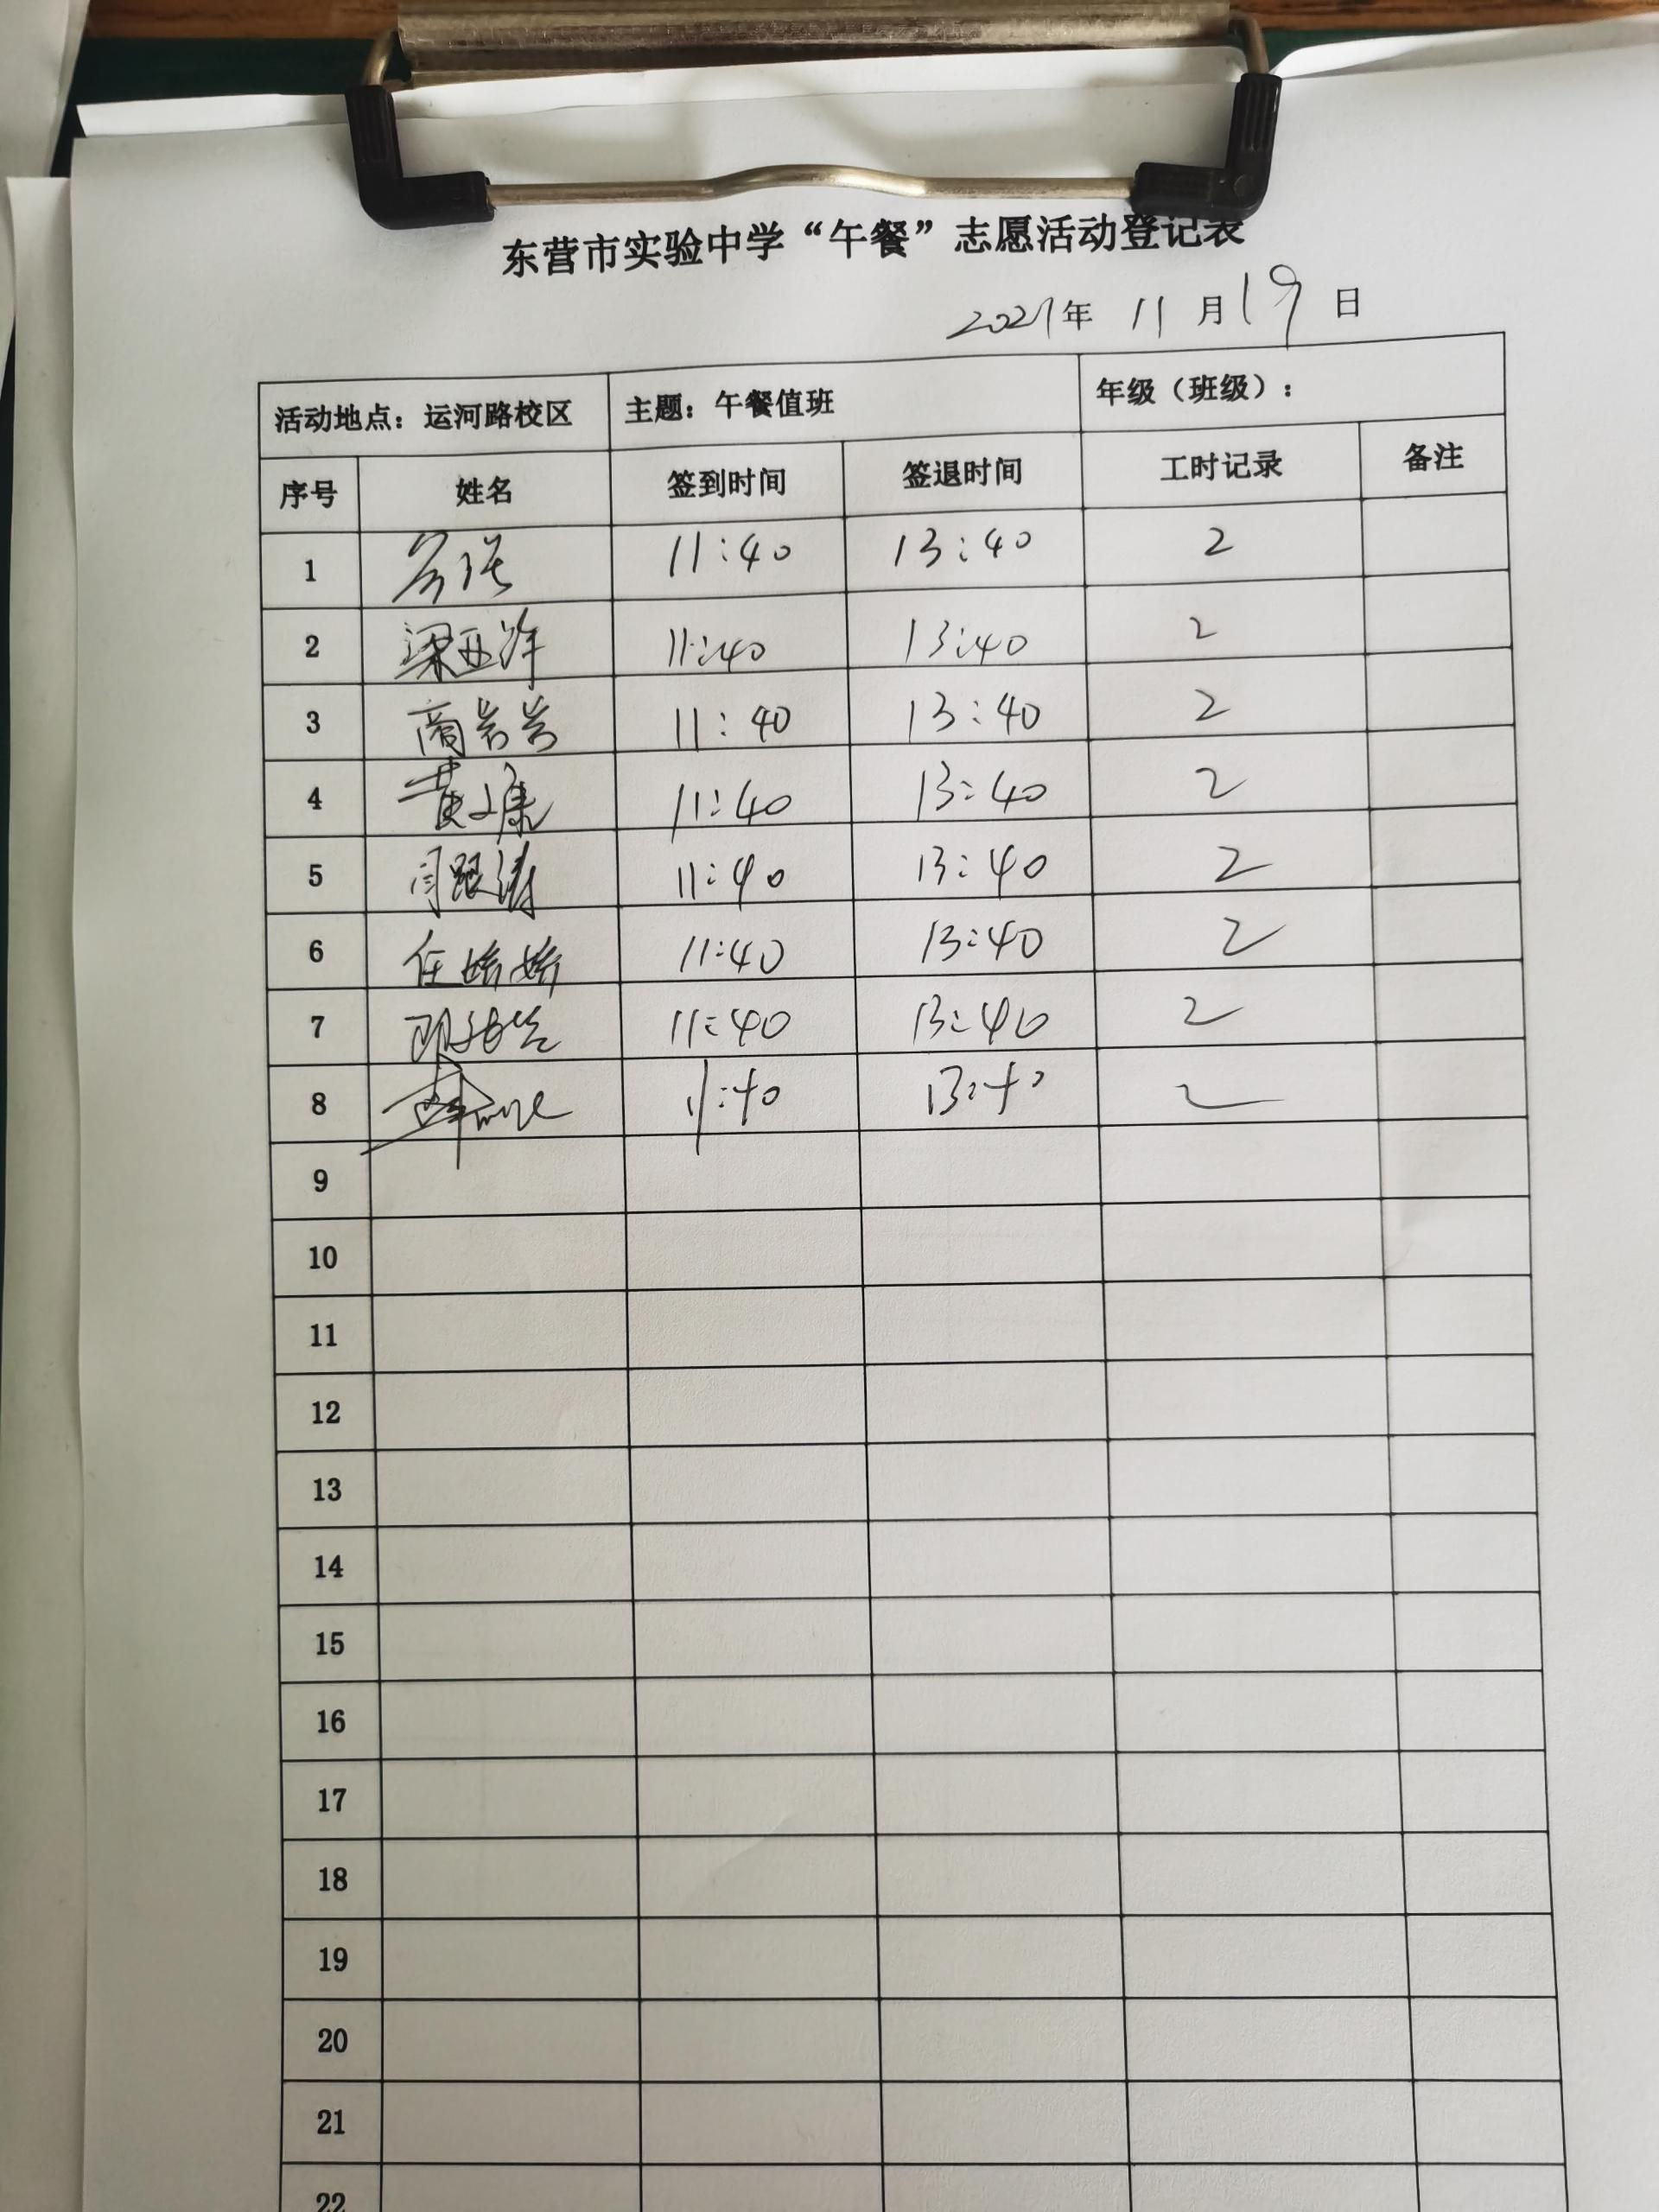 东营市实验中学“午餐”志愿活动登记表
2021年 11 月 19 日
活动地点：运河路校区 主题：午餐值班 年级（班级）：
序号 姓名 签到时间 签退时间 工时记录 备注
1 11:40 13:40 2
2 梁亚洋 11:40 13:40 2
3 商岩岩 11:40 13:40 2
4 黄 康 11:40 13:40 2
5 闫跟涛 11:40 13:40 2
6 任娇娇 11:40 13:40 2
7 11:40 13:40 2
8 11:40 13:40 2
9
10
11
12
13
14
15
16
17
18
19
20
21
22